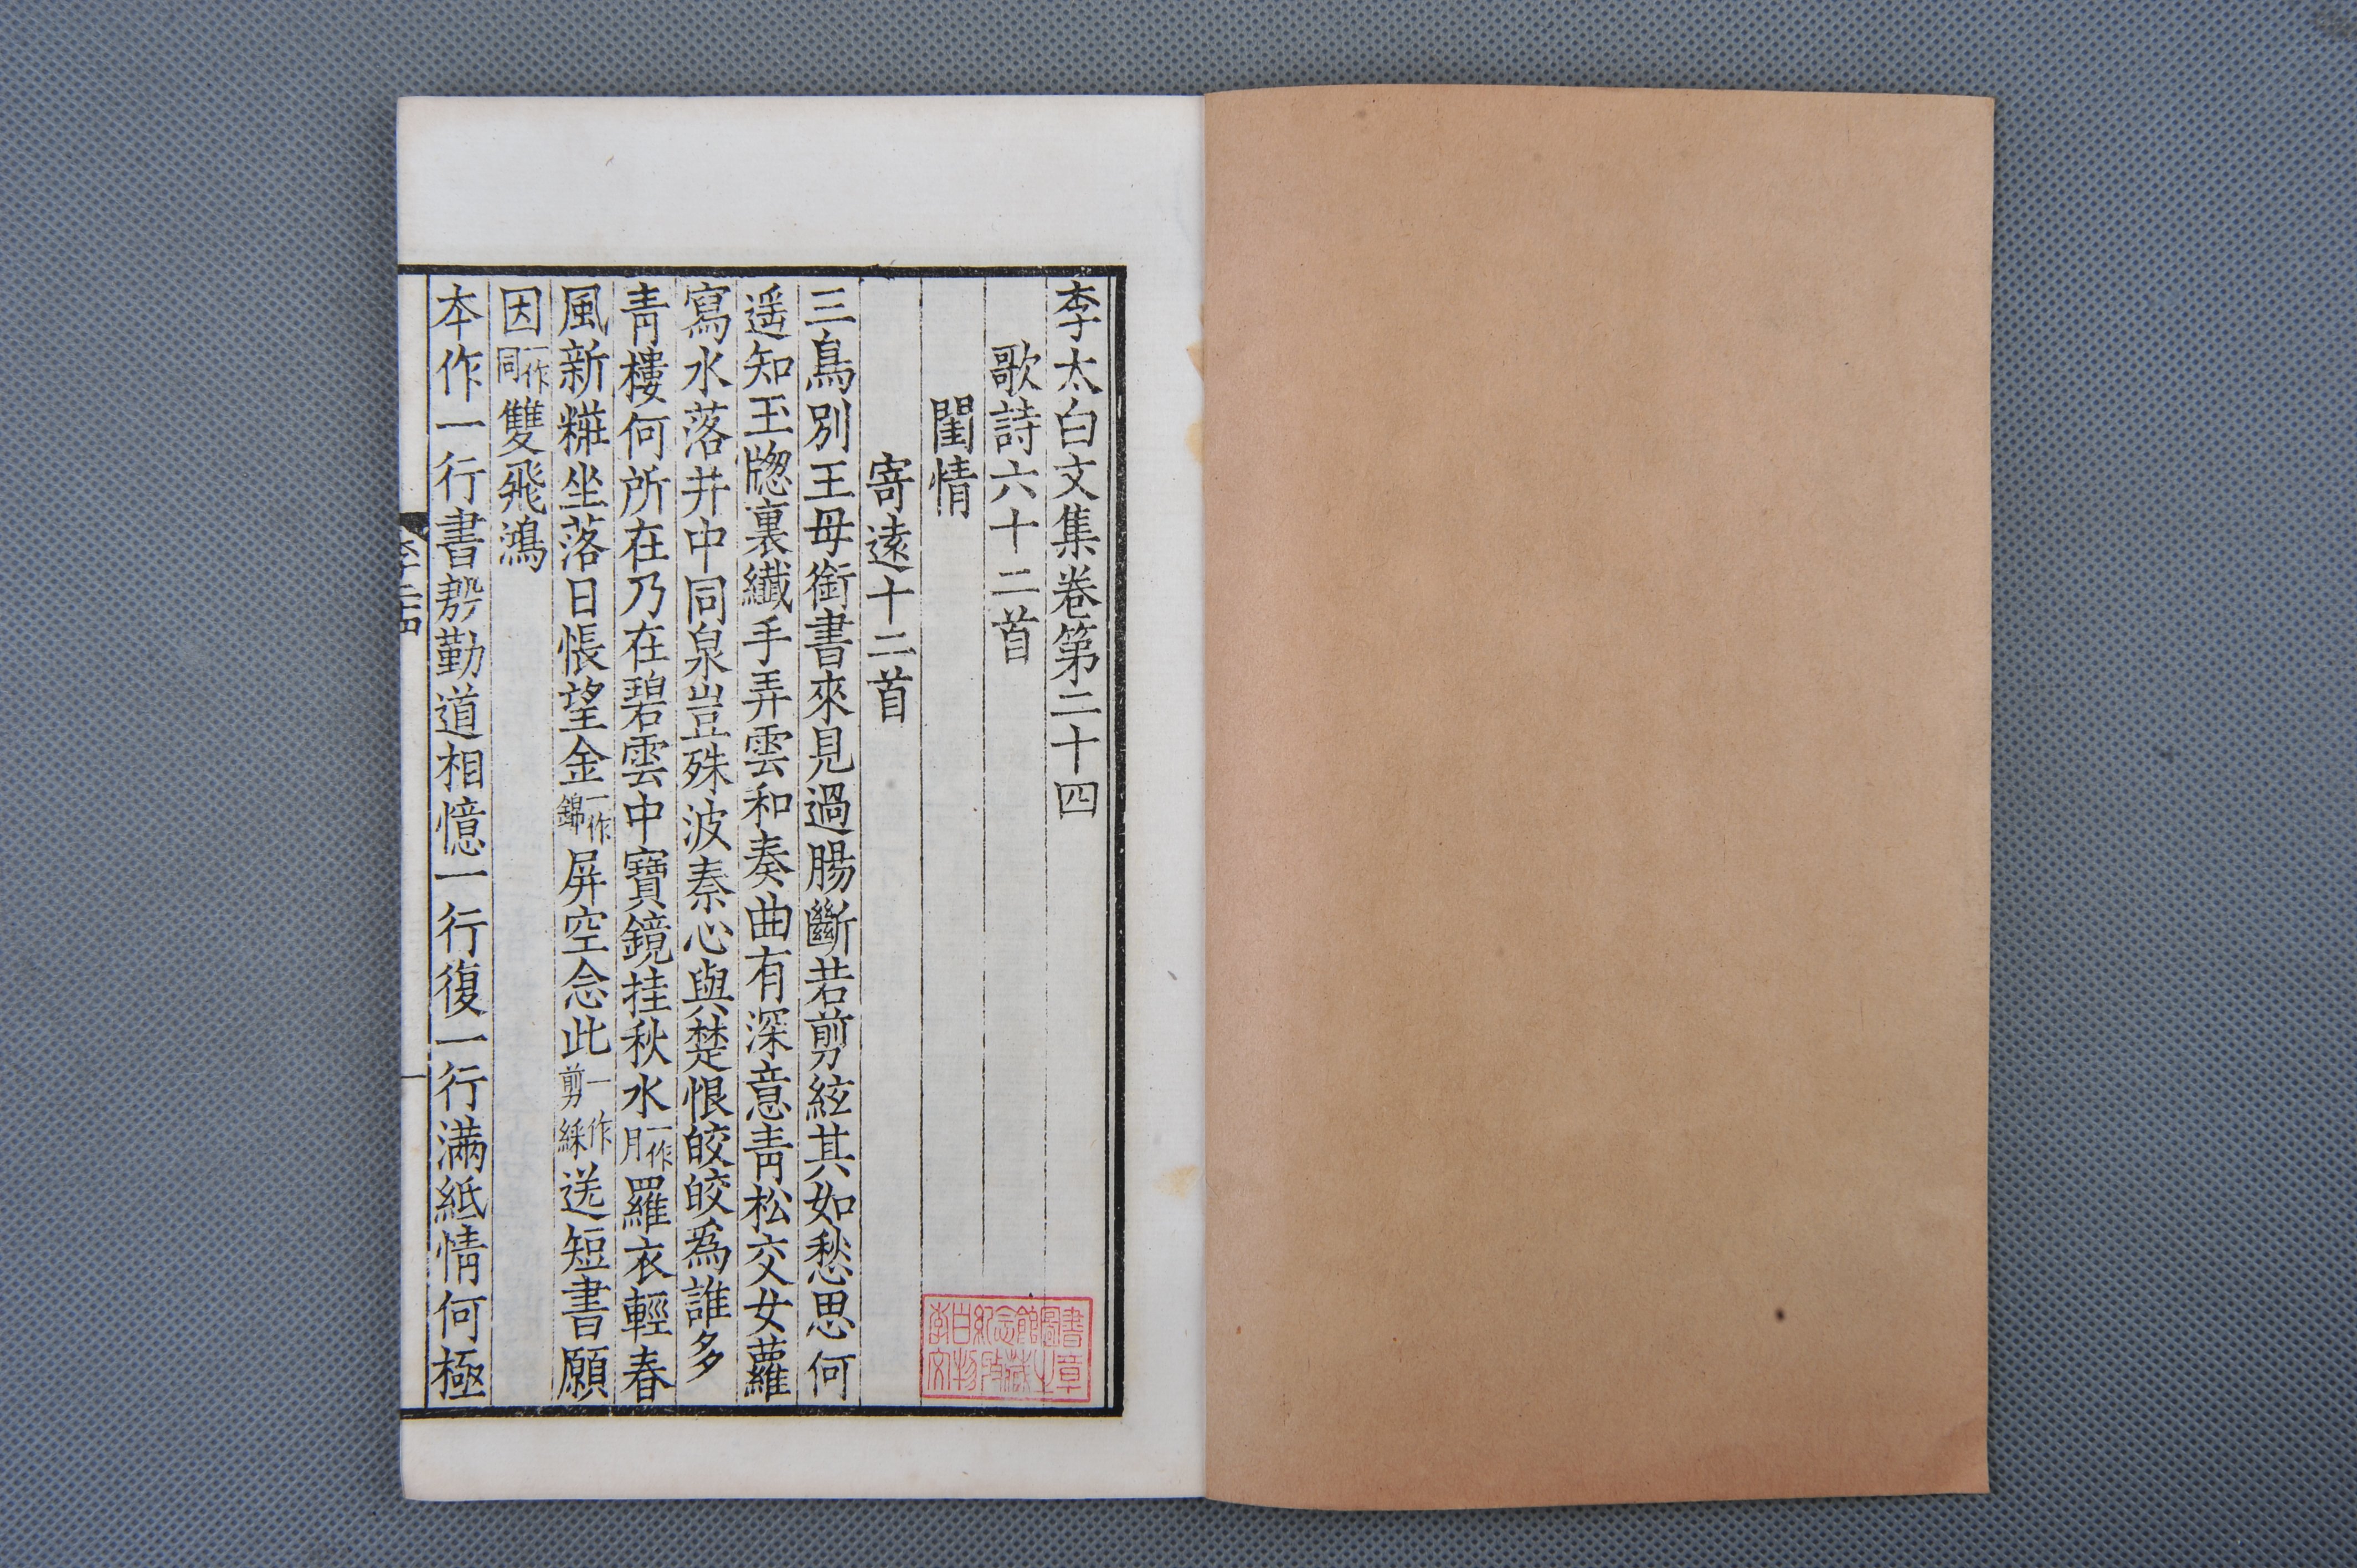 李太白文集卷第二十四
歌詩六十二首
閨情
寄遠十二首
三鳥別王母銜書來見過腸斷若剪絃其如愁思何
遥知玉牕裏纖手弄雲和奏曲有深意青松交女蘿
寫水落井中同泉豈殊波秦心與楚恨皎皎爲誰多
青樓何所在乃在碧雲中寶鏡挂秋水一作月羅衣輕春
風新糚坐落日悵望金一作錦屏空念此一作剪綵送短書願
因一作同雙飛鴻
本作一行書慇勤道相憶一行復一行滿紙情何極
李二十四
一
李白紀念館圖書
文物收藏之章